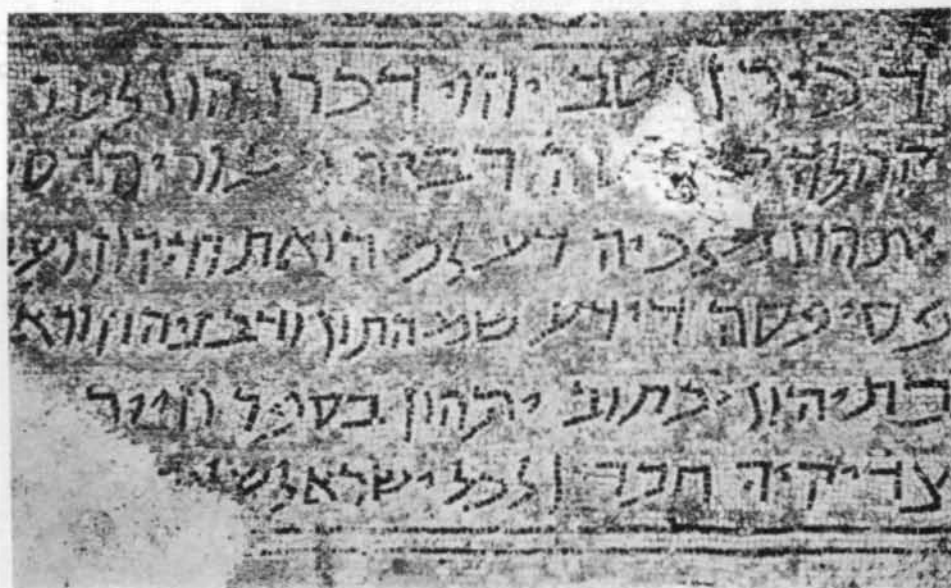 דכירן לטב יהוי דכרנהון לטב
קהלה רביה וזעוריה דסי
יתהון מלכיה דעלמה ואתחזקון ועב
פסיפסה דידע שמהתהון ודבניהון ודא
בתיהון יכתוב יתהון בספר חייה
צדיקיה חברין לכל ישראל